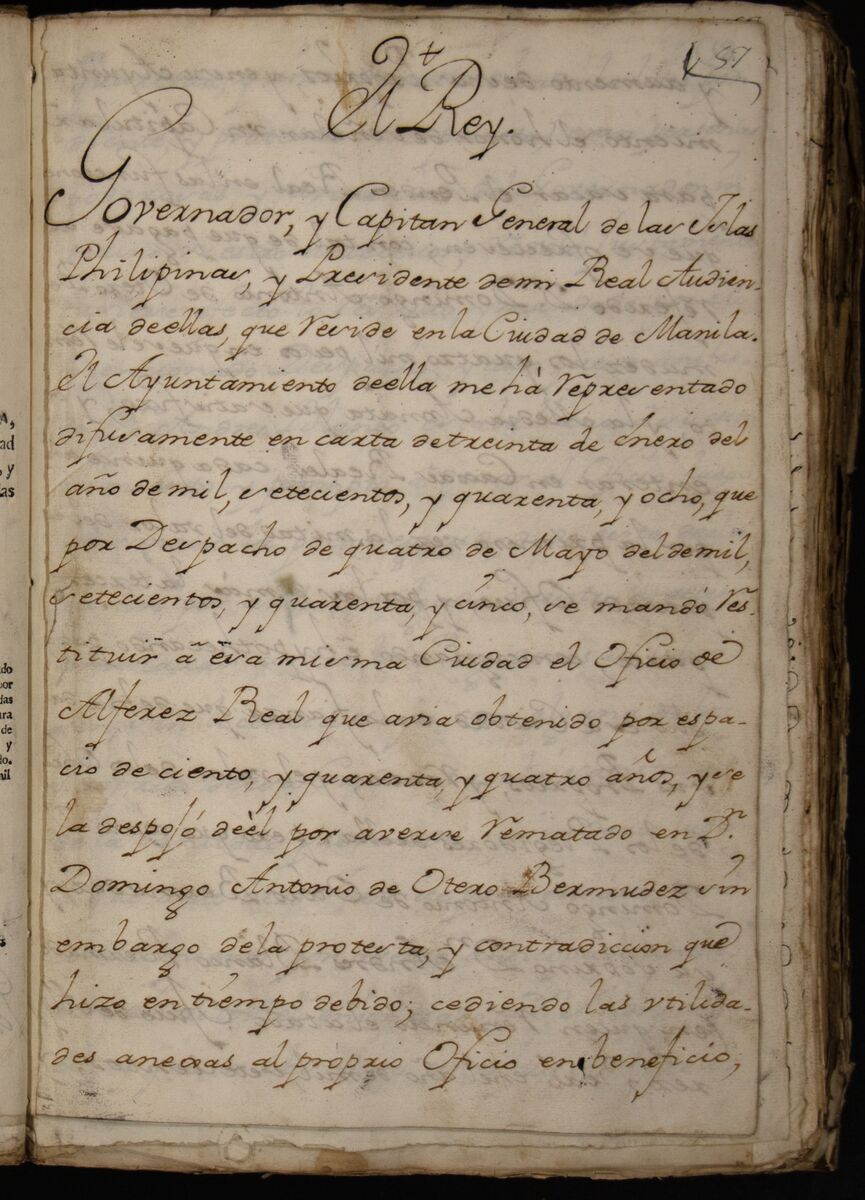 57
El Rey.
Governador, y Capitan General de las Islas
Philipinas, y Presidente de mi Real Audien-
cia de ellas, que reside en la Ciudad de Manila.
El Ayuntamiento de ella me hà representado
difusamente en carta de treinta de Enero del
año de mil, setecientos, y quarenta, y ocho, que
por Despacho de quatro de Mayo del de mil,
setecientos, y quarenta, y cinco, se mandó res-
tituir â esa misma Ciudad el Oficio de
Alferez Real que avia obtenido por espa-
cio de ciento, y quarenta, y quatro años, y se
la desposó de èl por averse rematado en Dn.
Domingo Antonio de Otero Bermudez sin
embargo de la protesta, y contradiccion que
hizo en tiempo debido; cediendo las vtilida-
des anexas al proprio Oficio en beneficio,
A,
ad
, y
as
do
por
ias
ura
de
y
do.
mil
s